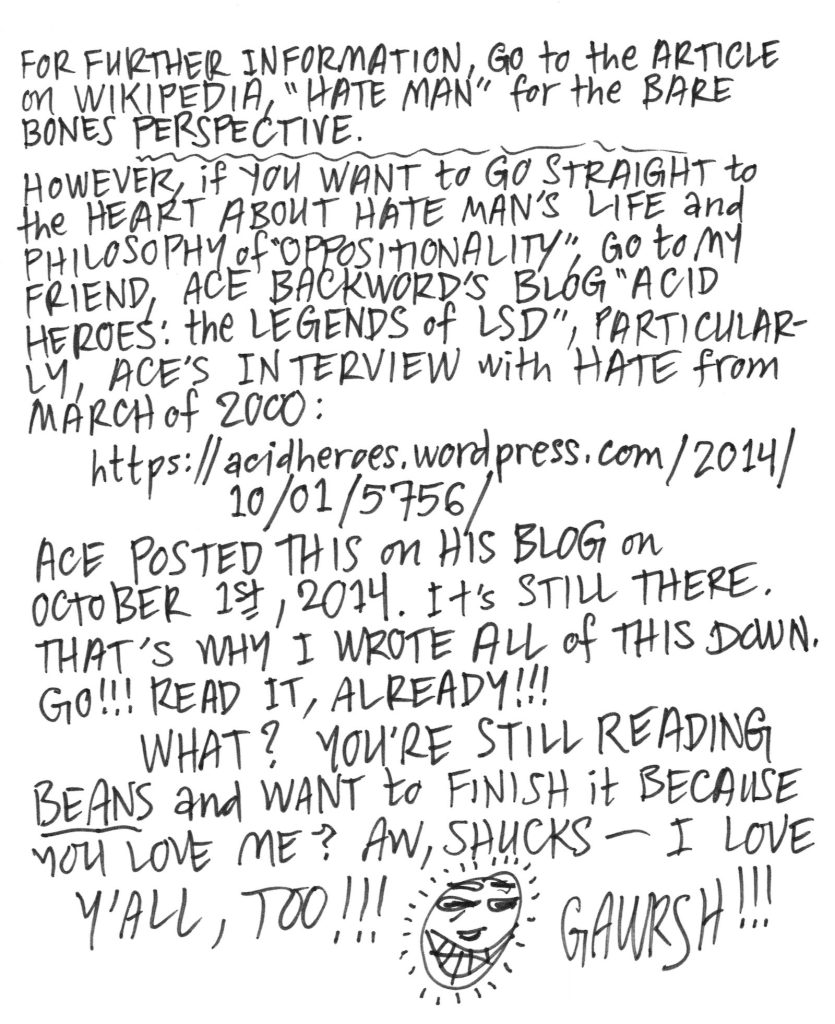 FOR FURTHER INFORMATION, GO to the ARTICLE
on WIKIPEDIA, "HATE MAN" for the BARE
BONES PERSPECTIVE.
HOWEVER, if YOU WANT to GO STRAIGHT to
the HEART ABOUT HATE MAN'S LIFE and
PHILOSOPHY of "OPPOSITIONALITY", GO to MY
FRIEND, ACE BACKWORD'S BLOG "ACID
HEROES: the LEGENDS of LSD", PARTICULAR-
LY, ACE'S INTERVIEW with HATE from
MARCH of 2000:
https://acidheroes.wordpress.com/2014/
10/01/5756/
ACE POSTED THIS on HIS BLOG on
OCTOBER 1st, 2014. It's STILL THERE.
THAT'S WHY I WROTE ALL of THIS DOWN.
GO!!! READ IT, ALREADY!!!
WHAT? YOU'RE STILL READING
BEANS and WANT to FINISH it BECAUSE
YOU LOVE ME? AW, SHUCKS — I LOVE
Y'ALL, TOO!!! GAWRSH!!!